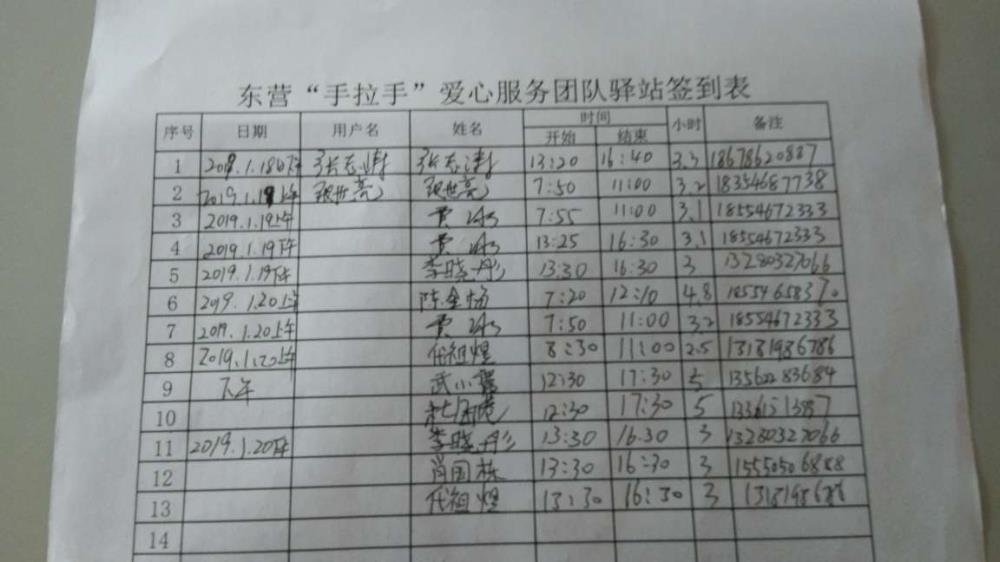 东营“手拉手”爱心服务团队驿站签到表
序号 日期 用户名 姓名 时间 小时 备注
开始 结束
1 2019.1.18下午 张志涛 张志涛 13:20 16:40 3.3 18678620887
2 2019.1.19上午 张世亮 张世亮 7:50 11:00 3.2 18354687738
3 2019.1.19上午 贾冰 7:55 11:00 3.1 18554672333
4 2019.1.19下午 贾冰 13:25 16:30 3.1 18554672333
5 2019.1.19下午 李晓彤 13:30 16:30 3 13280327066
6 2019.1.20上午 陈金杨 7:20 12:10 4.8
7 2019.1.20上午 贾冰 7:50 11:00 3.2 18554672333
8 2019.1.20上午 任祖煜 8:30 11:00 2.5 13181986786
9 下午 武小 12:30 17:30 5 13562283684
10 杜 12:30 17:30 5
11 2019.1.20下午 李晓彤 13:30 16.30 3 13280327066
12 肖国栋 13:30 16:30 3 15550506888
13 任祖煜 13:30 16:30 3
14